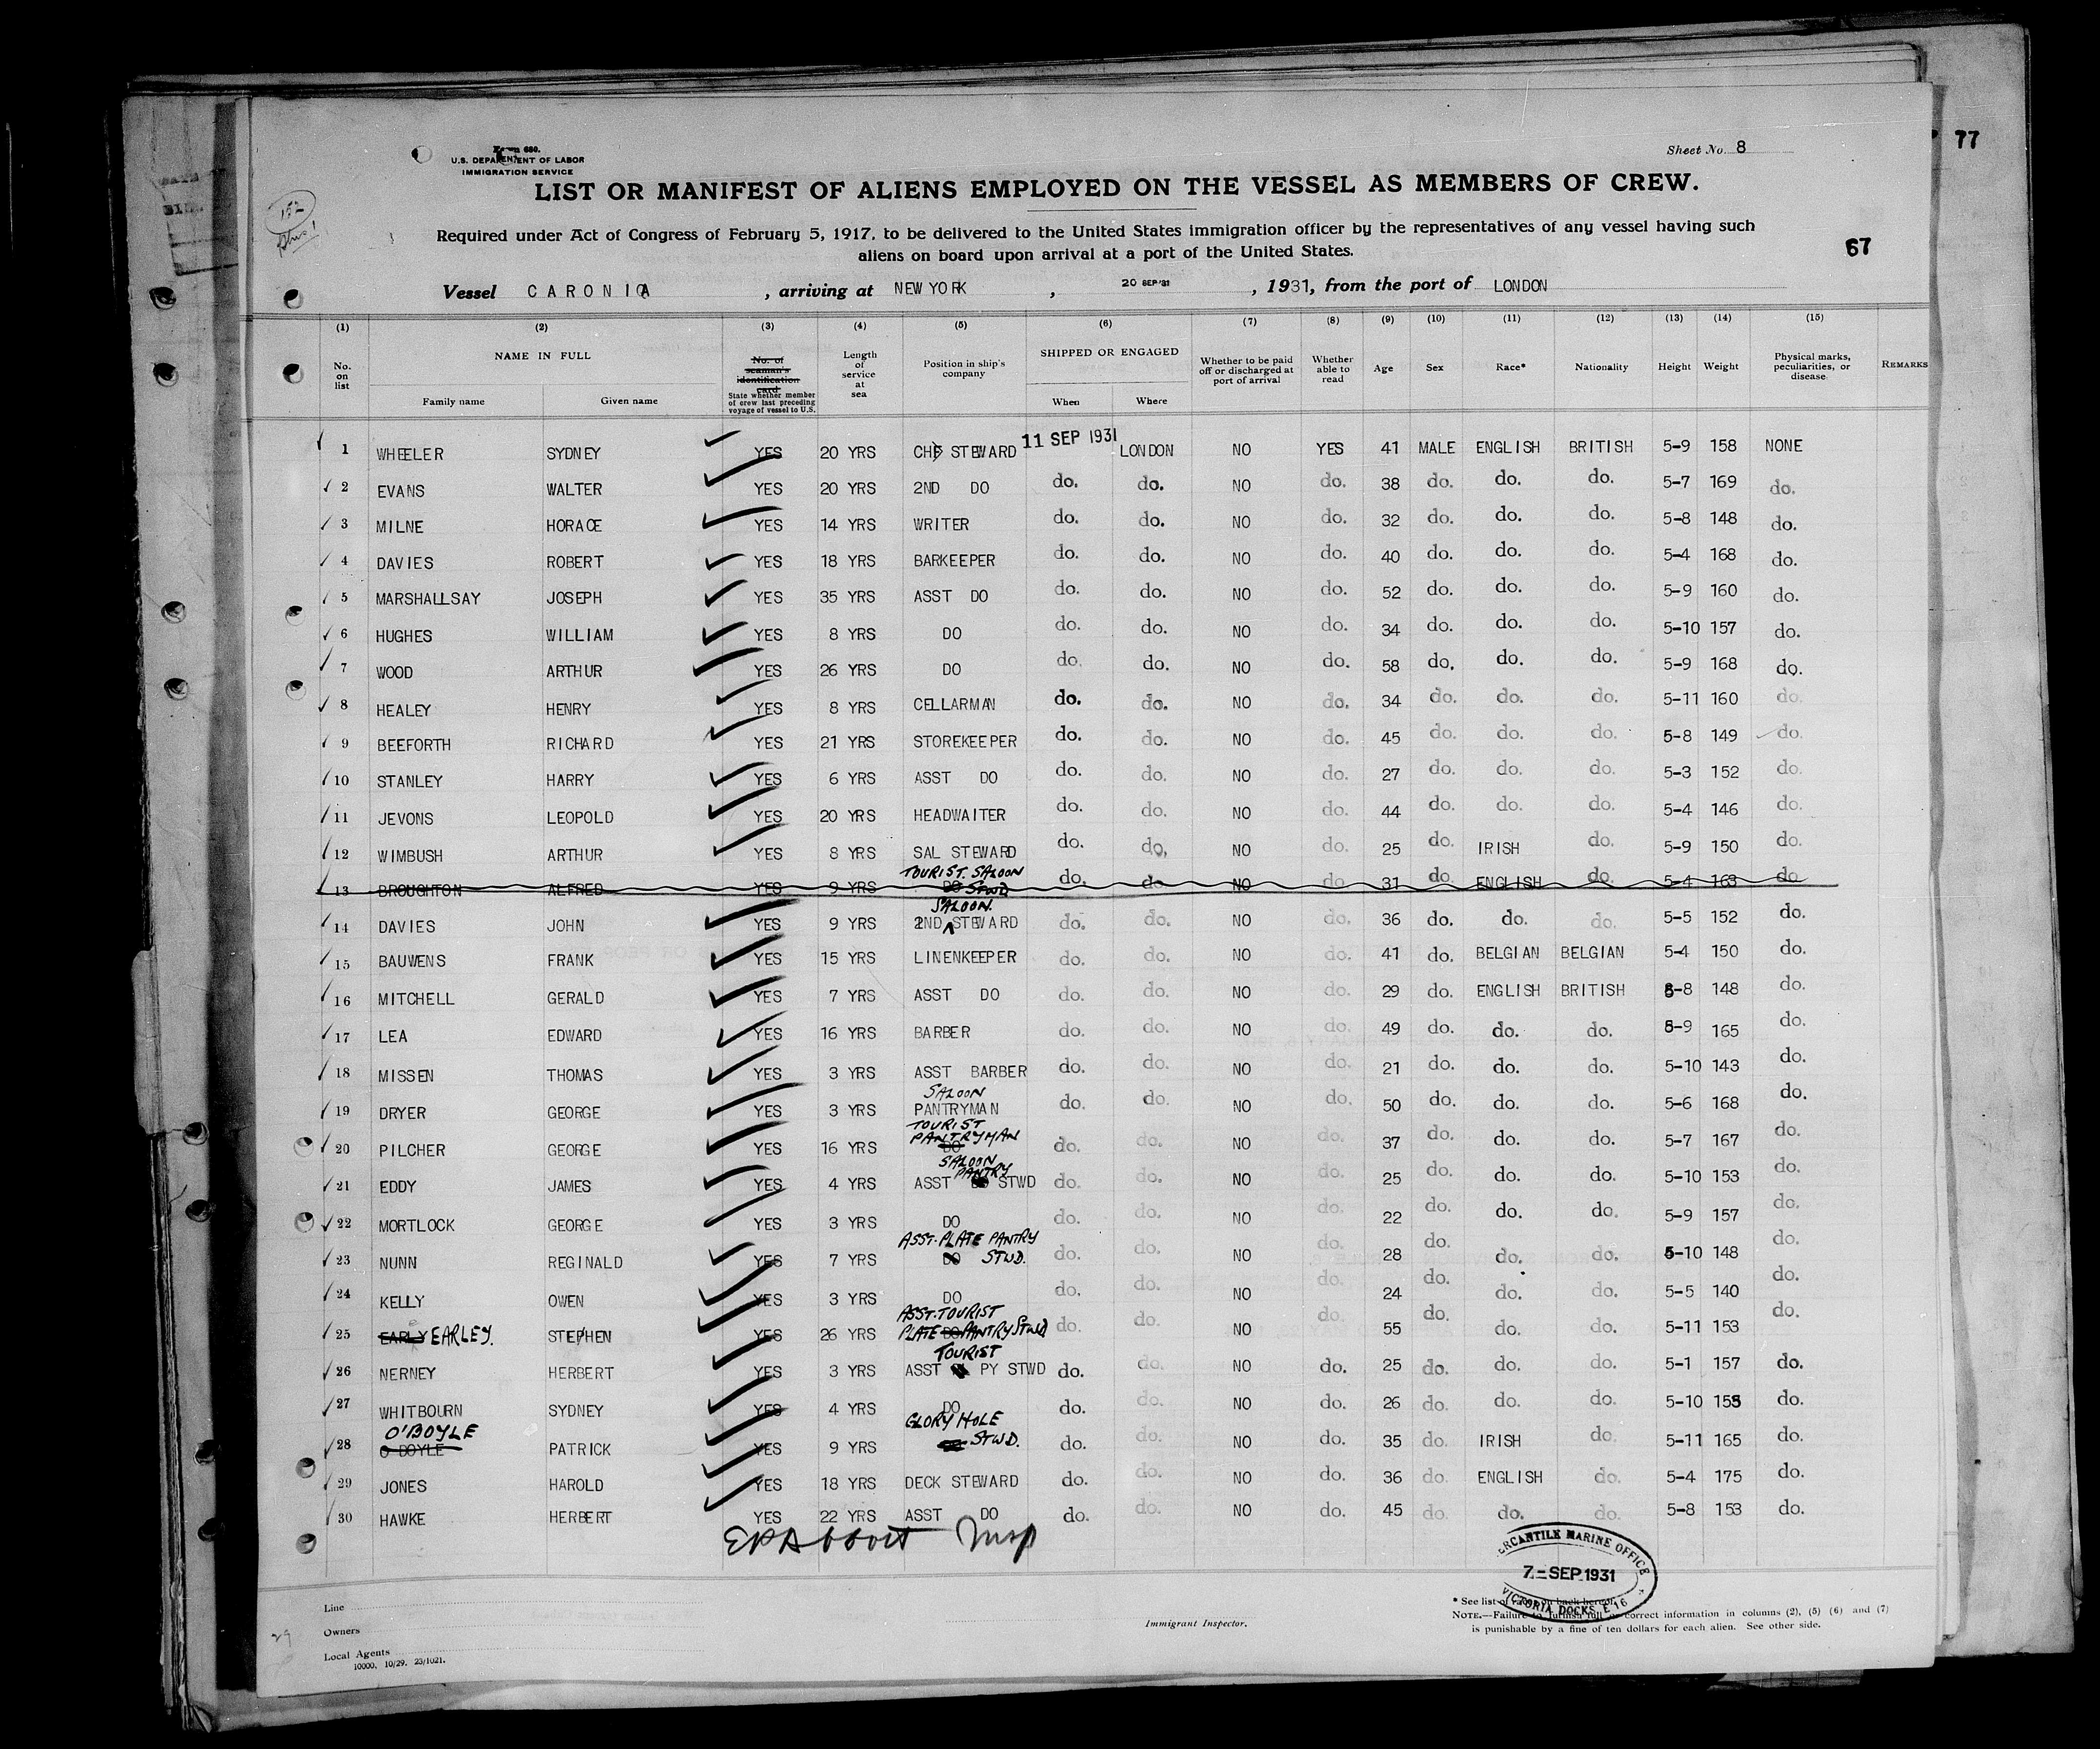 77
Sheet No. 8
Form 680.
U.S. DEPARTMENT OF LABOR
IMMIGRATION SERVICE
LIST OR MANIFEST OF ALIENS EMPLOYED ON THE VESSEL AS MEMBERS OF CREW.
152
Required under Act of Congress of February 5, 1917, to be delivered to the United States immigration officer by the representatives of any vessel having such
aliens on board upon arrival at a port of the United States.
67
Vessel CARONIA, arriving at NEW YORK, 20 SEP '31, 1931, from the port of LONDON
(1) (2) (3) (4) (5) (6) (7) (8) (9) (10) (11) (12) (13) (14) (15)
No. on list NAME IN FULL Family name Given name No. of seaman's identification card State whether member of crew last preceding voyage of vessel to U.S. Length of service at sea Position in ship's company SHIPPED OR ENGAGED When Where Whether to be paid off or discharged at port of arrival Whether able to read Age Sex Race* Nationality Height Weight Physical marks, peculiarities, or disease REMARKS
1 WHEELER SYDNEY YES 20 YRS CH STEWARD 11 SEP 1931 LONDON NO YES 41 MALE ENGLISH BRITISH 5-9 158 NONE
2 EVANS WALTER YES 20 YRS 2ND DO do. do. NO do. 38 do. do. do. 5-7 169 do.
3 MILNE HORACE YES 14 YRS WRITER do. do. NO do. 32 do. do. do. 5-8 148 do.
4 DAVIES ROBERT YES 18 YRS BARKEEPER do. do. NO do. 40 do. do. do. 5-4 168 do.
5 MARSHALLSAY JOSEPH YES 35 YRS ASST DO do. do. NO do. 52 do. do. do. 5-9 160 do.
6 HUGHES WILLIAM YES 8 YRS DO do. do. NO do. 34 do. do. do. 5-10 157 do.
7 WOOD ARTHUR YES 26 YRS DO do. do. NO do. 58 do. do. do. 5-9 168 do.
8 HEALEY HENRY YES 8 YRS CELLARMAN do. do. NO do. 34 do. do. do. 5-11 160 do.
9 BEEFORTH RICHARD YES 21 YRS STOREKEEPER do. do. NO do. 45 do. do. do. 5-8 149 do.
10 STANLEY HARRY YES 6 YRS ASST DO do. do. NO do. 27 do. do. do. 5-3 152 do.
11 JEVONS LEOPOLD YES 20 YRS HEADWAITER do. do. NO do. 44 do. do. do. 5-4 146 do.
12 WIMBUSH ARTHUR YES 8 YRS SAL STEWARD do. do. NO do. 25 do. IRISH do. 5-9 150 do.
13 BROUGHTON ALFRED YES 9 YRS TOURIST. SALOON DO STWD do. do NO do 31 do. ENGLISH do. 5-4 163 do
14 DAVIES JOHN YES 9 YRS 2ND SALOON. STEWARD do. do. NO do. 36 do. do. do. 5-5 152 do.
15 BAUWENS FRANK YES 15 YRS LINENKEEPER do. do. NO do. 41 do. BELGIAN BELGIAN 5-4 150 do.
16 MITCHELL GERALD YES 7 YRS ASST DO do. do. NO do. 29 do. ENGLISH BRITISH 5-8 148 do.
17 LEA EDWARD YES 16 YRS BARBER do. do. NO do. 49 do. do. do. 5-9 165 do.
18 MISSEN THOMAS YES 3 YRS ASST BARBER do. do. NO do. 21 do. do. do. 5-10 143 do.
19 DRYER GEORGE YES 3 YRS SALOON PANTRYMAN do. do. NO do. 50 do. do. do. 5-6 168 do.
20 PILCHER GEORGE YES 16 YRS TOURIST PANTRYMAN DO do. do. NO do. 37 do. do. do. 5-7 167 do.
21 EDDY JAMES YES 4 YRS ASST SALOON PANTRY STWD do. do. NO do. 25 do. do. do. 5-10 153 do.
22 MORTLOCK GEORGE YES 3 YRS DO do. do. NO do. 22 do. do. do. 5-9 157 do.
23 NUNN REGINALD YES 7 YRS ASST. PLATE PANTRY DO STWD. do. do. NO do. 28 do. do. do. 5-10 148 do.
24 KELLY OWEN YES 3 YRS DO do. do. NO do. 24 do. do. do. 5-5 140 do.
25 EARLY EARLEY. STEPHEN YES 26 YRS ASST. TOURIST PLATE DO PANTRY STWD do. do. NO do. 55 do. do. do. 5-11 153 do.
26 NERNEY HERBERT YES 3 YRS ASST TOURIST PY STWD do. do. NO do. 25 do. do. do. 5-1 157 do.
27 WHITBOURN SYDNEY YES 4 YRS DO do. do. NO do. 26 do. do. do. 5-10 155 do.
28 O'BOYLE O DOYLE PATRICK YES 9 YRS GLORY HOLE STWD. do. do. NO do. 35 do. IRISH do. 5-11 165 do.
29 JONES HAROLD YES 18 YRS DECK STEWARD do. do. NO do. 36 do. ENGLISH do. 5-4 175 do.
30 HAWKE HERBERT YES 22 YRS ASST DO do. do. NO do. 45 do. do. do. 5-8 153 do.
E P Abbott Insp
MERCANTILE MARINE OFFICE
7-SEP.1931
VICTORIA DOCKS, E 16
Line
Owners
Local Agents
10000. 10/29. 23/1021.
29
Immigrant Inspector.
* See list of races on back hereof.
NOTE.—Failure to furnish full or correct information in columns (2), (5) (6) and (7)
is punishable by a fine of ten dollars for each alien. See other side.